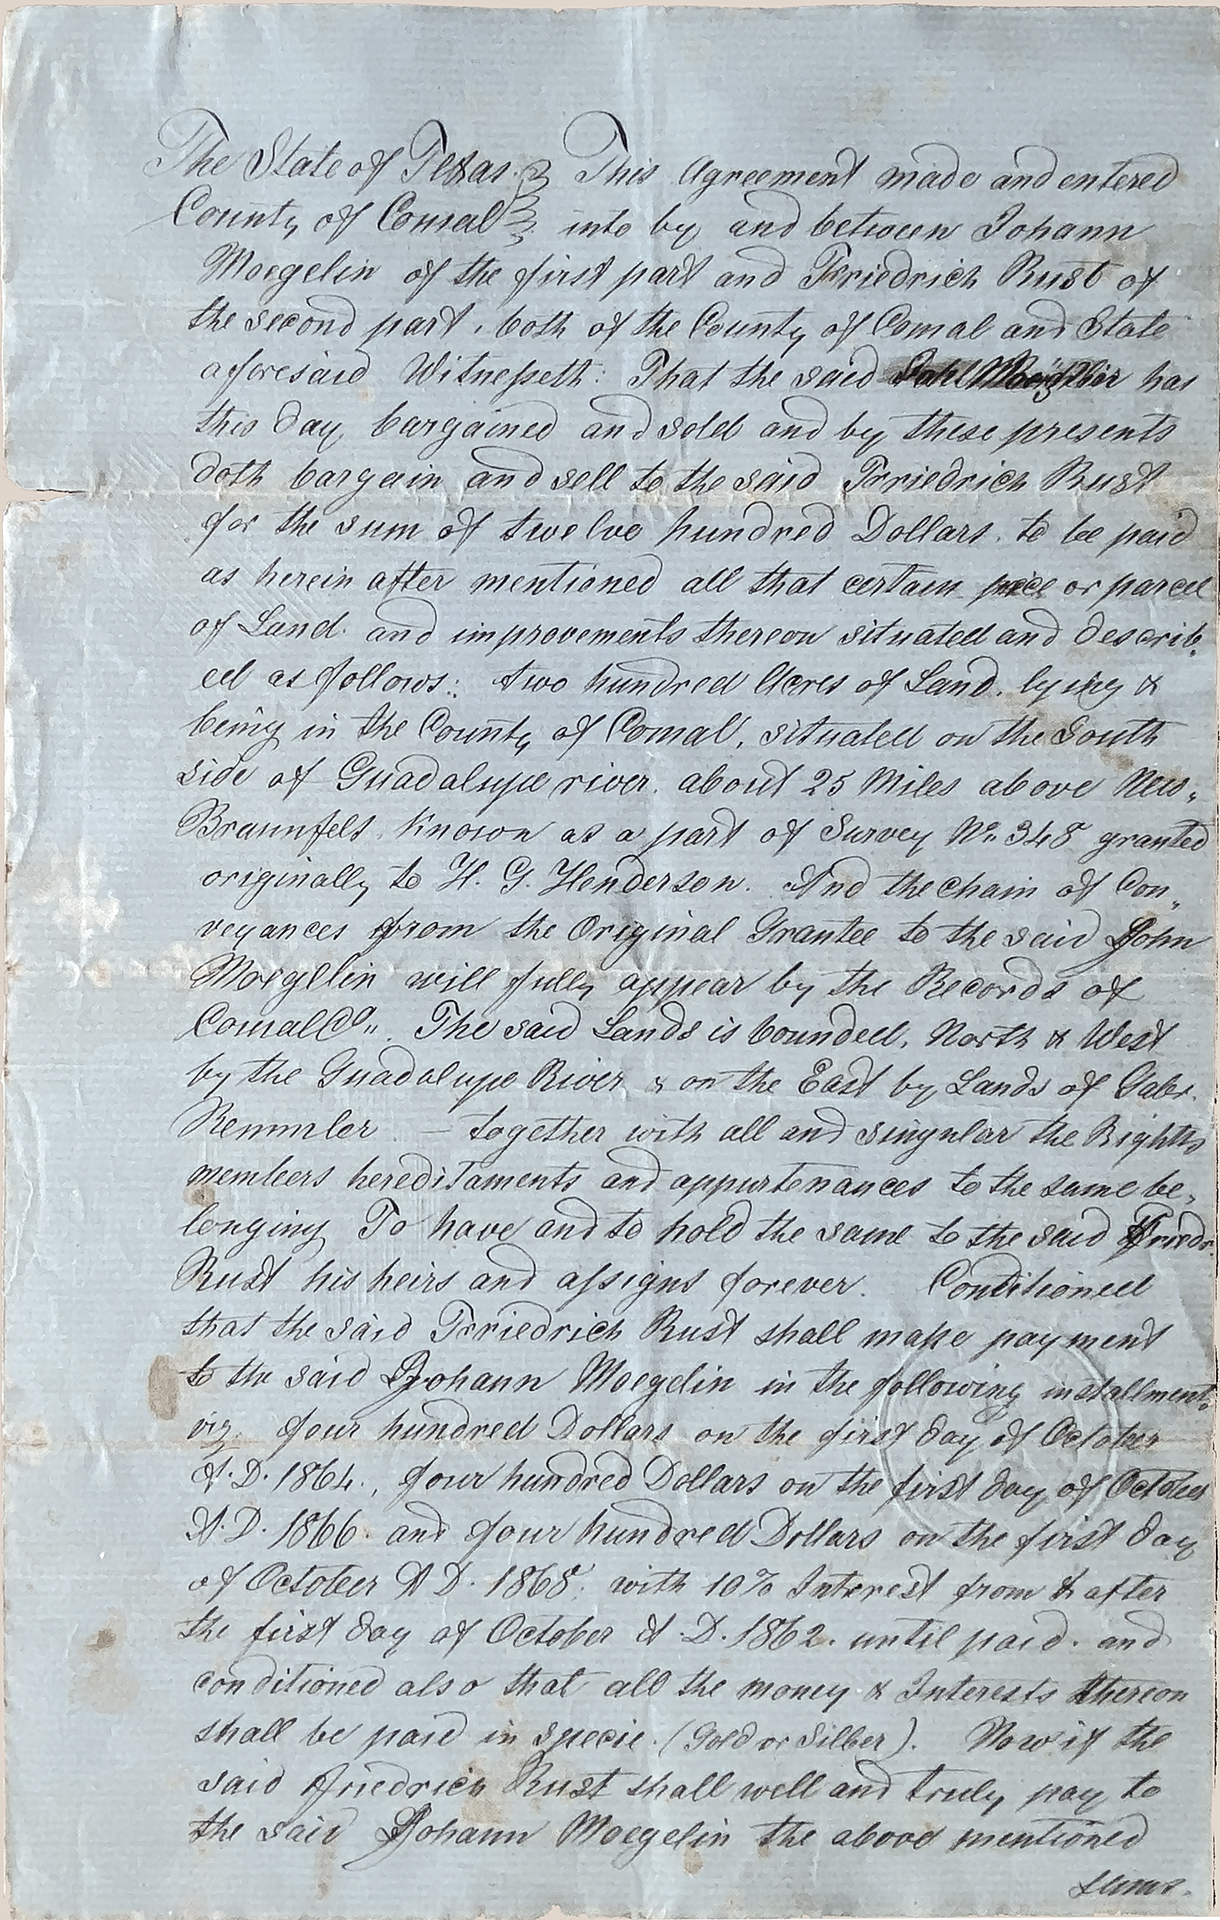 The State of Texas. } This Agreement made and entered
County of Comal } into by and between Johann
Moegelin of the first part and Friedrich Rust of
the second part, both of the County of Comal and State
aforesaid Witnesseth: That the said has
this day bargained and sold and by these presents
doth bargain and sell to the said Friedrich Rust
for the sum of twelve hundred Dollars, to be paid
as herein after mentioned all that certain piece or parcel
of Land and improvements thereon situated and describ-
ed as follows: two hundred Acres of Land, lying &
being in the County of Comal, situated on the South
side of Guadalupe river, about 25 Miles above New-
Braunfels, Known as a part of Survey No. 348 granted
originally to H. G. Henderson. And the chain of Con-
veyances from the Original Grantee to the said John
Moegelin will fully appear by the Records of
Comal Co. The said Lands is bounded, North & West
by the Guadalupe River & on the East by Lands of Gabr.
Remmler — together with all and singular the Rights
members hereditaments and appurtenances to the same be-
longing To have and to hold the same to the said Friedr.
Rust his heirs and assigns forever. Conditioned
that the said Friedrich Rust shall make payment
to the said Johann Moegelin in the following installments
viz. four hundred Dollars on the first day of October
A.D. 1864, four hundred Dollars on the first day of October
A.D. 1866 and four hundred Dollars on the first day
of October A D. 1868, with 10% Interest from & after
the first day of October A.D. 1862. until paid. and
conditioned also that all the money & Interests thereon
shall be paid in specie. (Gold or Silber). Now if the
said Friedrich Rust shall well and truly pay to
the said Johann Moegelin the above mentioned